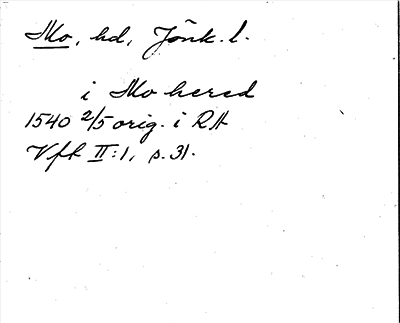 Mo, hd, Jönk. l.
i Mo hered
1540 2/5 orig. i RA
Vft II:1, s. 31.